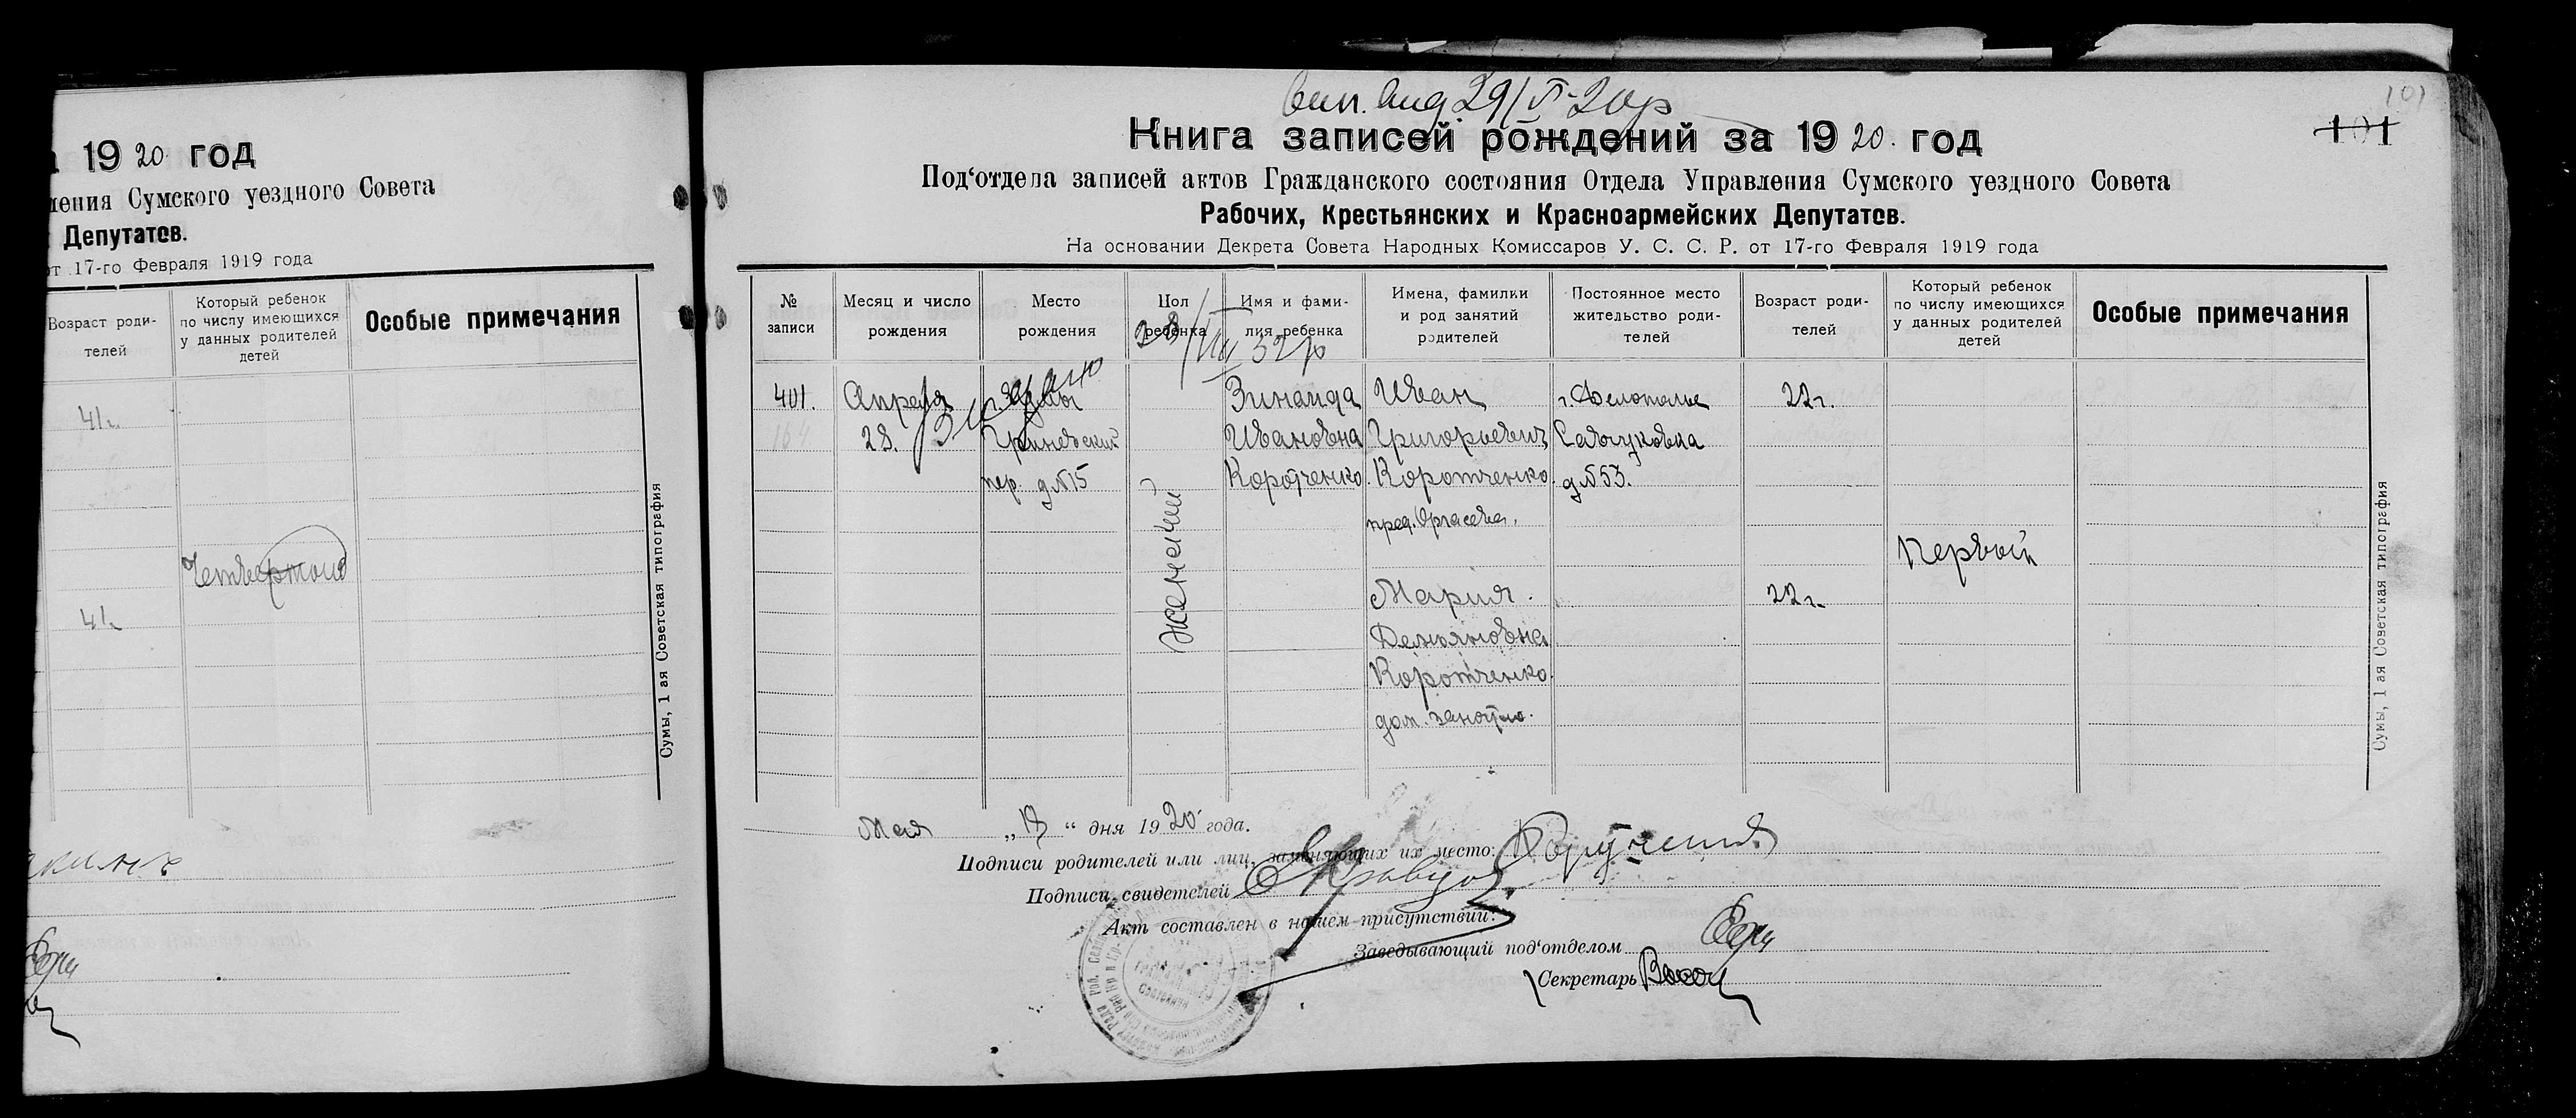 19 20 год
ления Сумского уездного Совета
Депутатов.
от 17-го Февраля 1919 года
Возраст роди-
телей
Который ребенок
по числу имеющихся
у данных родителей
детей
Особые примечания
41 г.
Четвертый
41 г.
Сумы, 1 ая Советская типография
101
101
29/VI-20 р
Книга записей рождений за 19 20. год
Под‘отдела записей актов Гражданского состояния Отдела Управления Сумского уездного Совета
Рабочих, Крестьянских и Красноармейских Депутатов.
На основании Декрета Совета Народных Комиссаров У. С. С. Р. от 17-го Февраля 1919 года
№
записи
Месяц и число
рождения
Место
рождения
Пол
ребенка
Имя и фами-
лия ребенка
Имена, фамилии
и род занятий
родителей
Постоянное место
жительство роди-
телей
Возраст роди-
телей
Который ребенок
по числу имеющихся
у данных родителей
детей
Особые примечания
28/VIII 32 р
401.
164
Апреля
28.
Видано
г. Сумы
Гриневский
пер. д№15
женский
Зинаида
Ивановна
Коротченко.
Иван
Григорьевич
Коротченко.
Мария.
Демьяновна
Коротченко.
дом. занят.
д№53.
22 г.
22 г.
Первый
Сумы, 1 ая Советская типография
Мая „ “ дня 19 20 года.
Подписи родителей или лиц, заменяющих их место:
Подписи свидетелей
Акт составлен в нашем присутствии:
Заведывающий под‘отделом
Секретарь